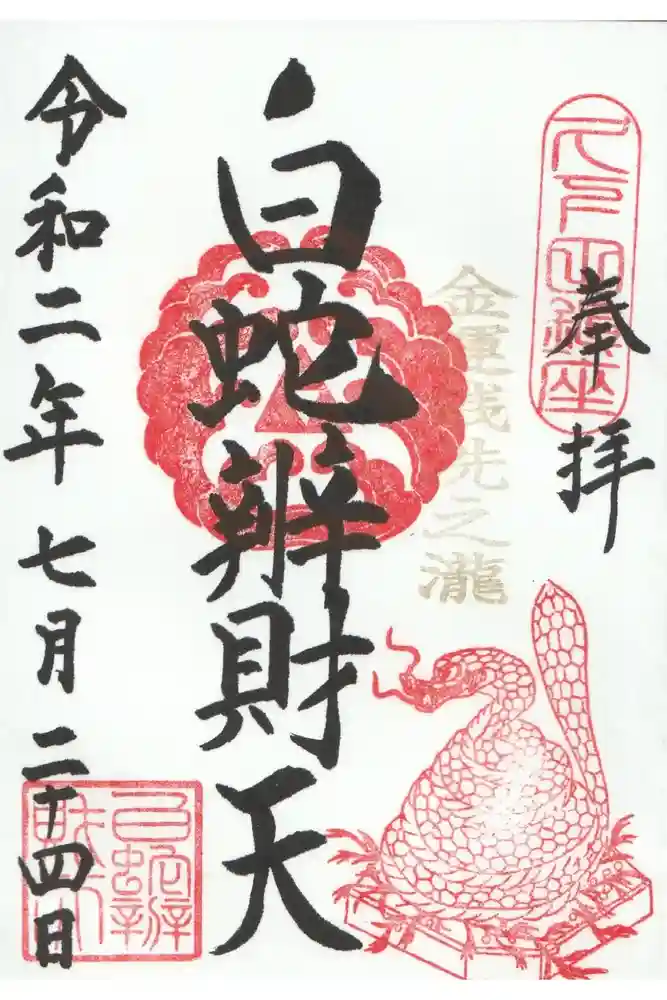 奉拝
金運銭洗之瀧
白蛇辨財天
令和二年七月二十四日
白蛇辨財天